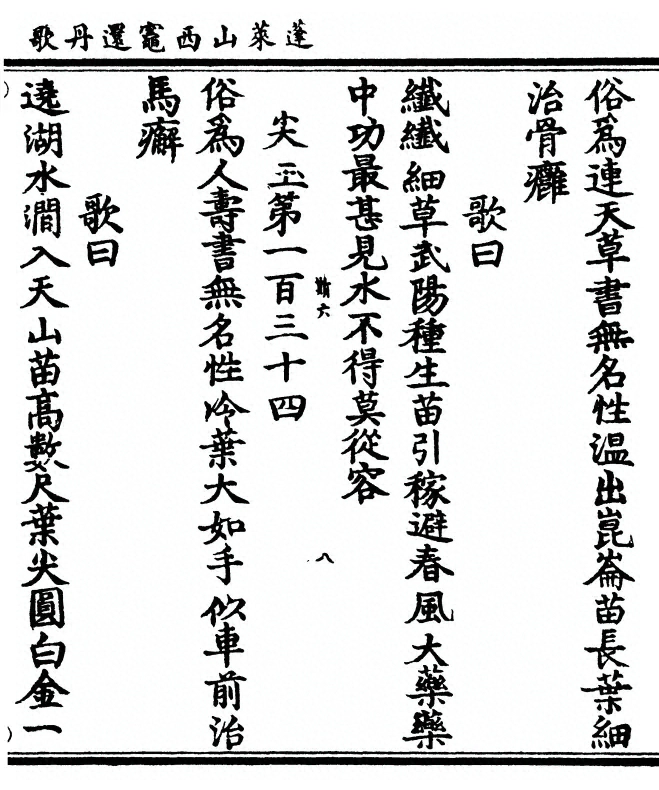 蓬萊山西竈還丹歌
俗爲連天草書無名性温出崑崙苗長葉細
治骨癰
歌曰
纖纖細草武陽種生苗引稼避春風大藥藥
中功最甚見水不得莫從容
尖 第一百三十四
俗爲人壽書無名性冷葉大如手似車前治
馬癬
歌曰
遶湖水澗入天山苗高數尺葉尖圓白金一
八